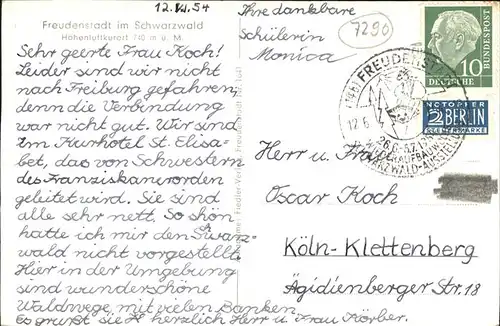 12.VI.54
Freudenstadt im Schwarzwald
Höhenluftkurort 740 m ü. M.
Sehr geerte Frau Koch!
Leider sind wir nicht
nach Freiburg gefahren,
denn die Verbindung
war nicht gut. Wir sind
im Kurhotel St. Elisa-
bet, das von Schwestern
des Franziskanerorden
geleitet wird. Sie sind
alle sehr nett. So schön
hatte ich mir den Schwarz-
wald nicht vorgestellt.
Hier in der Umgebung
sind wunderschöne
Waldwege mit vielen Banken.
Es grüßt sie herzlich Herr u. Frau Körber.
Ihre dankbare
Schülerin
Monica
7290
(14b) FREUDENST
12.6
26.6.-
DEUTSCHE
BUNDESPOST
10
NOTOPFER
2 BERLIN
STEUERMARKE
Herr u. Frau
Oscar Koch
Köln-Klettenberg
Ägidienberger Str. 18